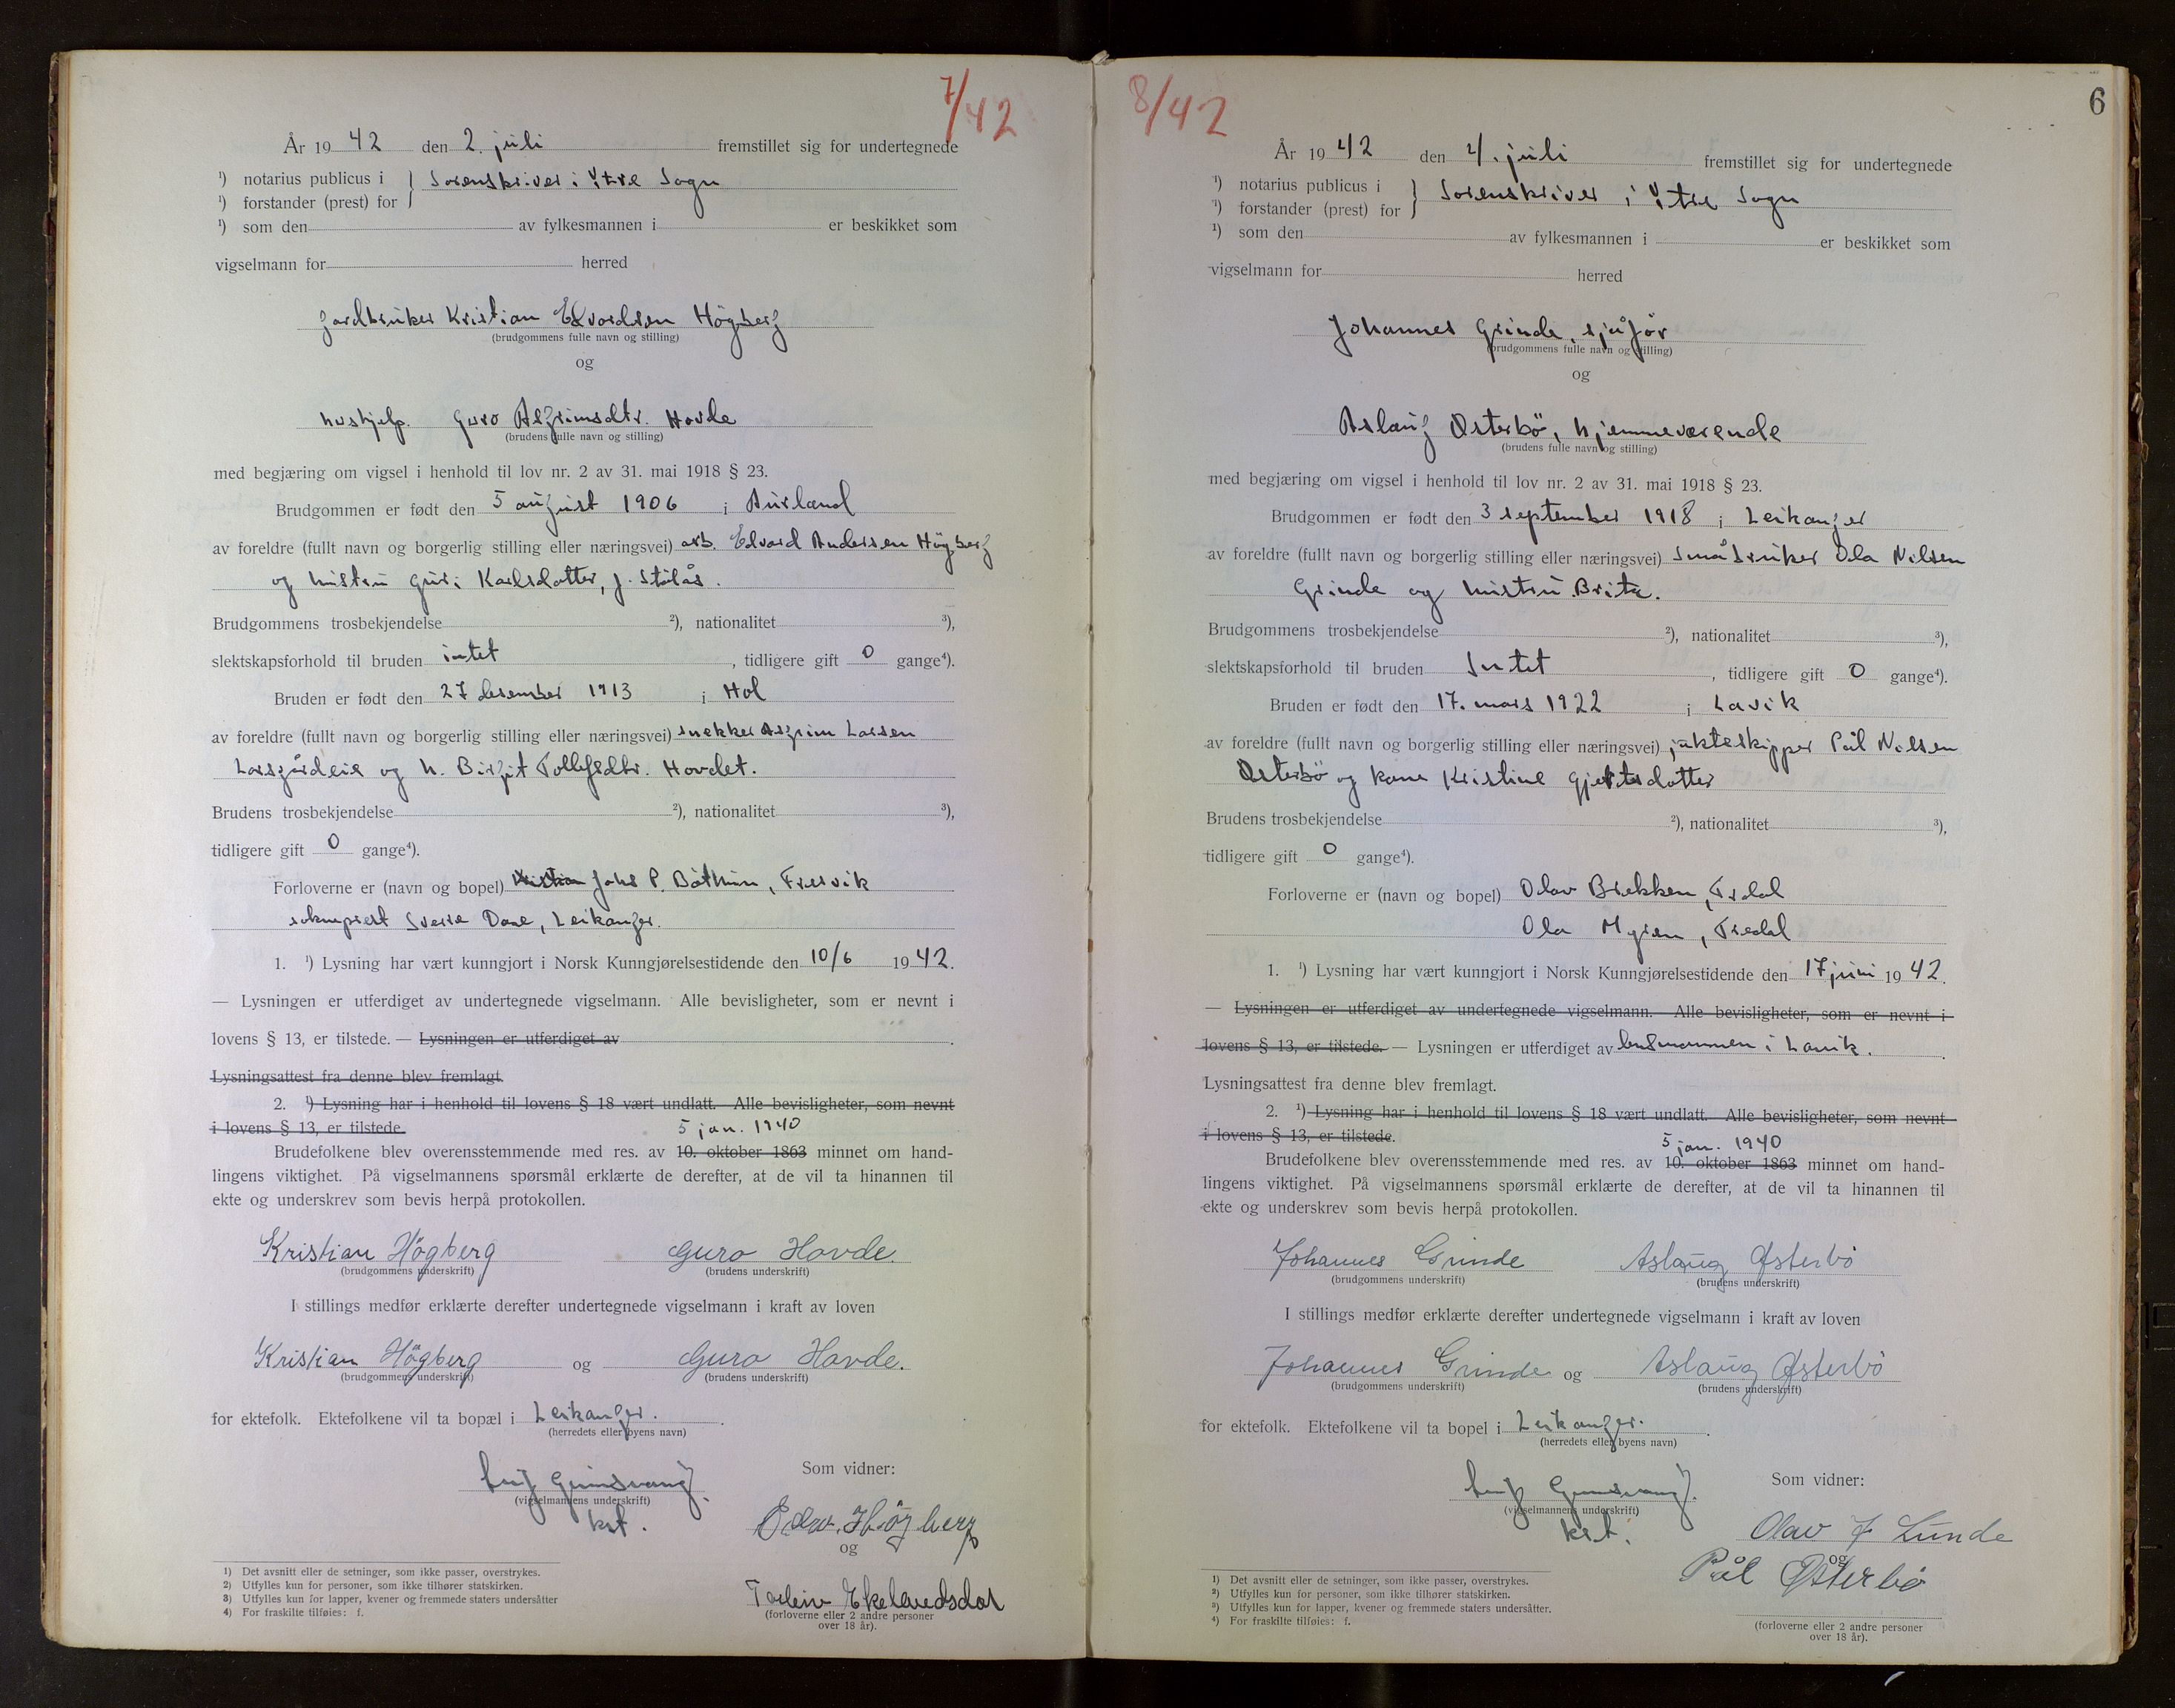 7/42
År 1942 den 2. juli fremstillet sig for undertegnede
¹) notarius publicus i } Sorenskriver i Ytre Sogn
¹) forstander (prest) for
¹) som den av fylkesmannen i er beskikket som
vigselmann for herred
Jordbruker Kristian Edvardsen Högberg
(brudgommens fulle navn og stilling)
og
hushjelp. Guro Asgrimsdtr. Hovde
(brudens fulle navn og stilling)
med begjæring om vigsel i henhold til lov nr. 2 av 31. mai 1918 § 23.
Brudgommen er født den 5 august 1906 i Aurland
av foreldre (fullt navn og borgerlig stilling eller næringsvei) arb. Edvard Andersen Högberg
og hustru Guri Karlsdatter, f. Stalås.
Brudgommens trosbekjendelse ²), nationalitet ³),
slektskapsforhold til bruden intet, tidligere gift 0 gange⁴).
Bruden er født den 27 desember 1913 i Hol
av foreldre (fullt navn og borgerlig stilling eller næringsvei) snekker Asgrim Larsen
Larsgårdeie og h. Birgit Tollefsdtr. Hovdet.
Brudens trosbekjendelse ²), nationalitet ³),
tidligere gift 0 gange⁴).
Forloverne er (navn og bopel) Kristian Johs P. Böthun, Fresvik
sokneprest Sverre Daae, Leikanger.
1. ¹) Lysning har vært kunngjort i Norsk Kunngjørelsestidende den 10/6 1942.
— Lysningen er utferdiget av undertegnede vigselmann. Alle bevisligheter, som er nevnt i
lovens § 13, er tilstede. — Lysningen er utferdiget av .
Lysningsattest fra denne blev fremlagt.
2. ¹) Lysning har i henhold til lovens § 18 vært undlatt. Alle bevisligheter, som nevnt
i lovens § 13, er tilstede.
5 jan. 1940
Brudefolkene blev overensstemmende med res. av 10. oktober 1863 minnet om hand-
lingens viktighet. På vigselmannens spørsmål erklærte de derefter, at de vil ta hinannen til
ekte og underskrev som bevis herpå protokollen.
Kristian Högberg Guro Hovde.
(brudgommens underskrift) (brudens underskrift)
I stillings medfør erklærte derefter undertegnede vigselmann i kraft av loven
Kristian Högberg og Guro Hovde.
(brudgommens underskrift) (brudens underskrift)
for ektefolk. Ektefolkene vil ta bopæl i Leikanger.
(herredets eller byens navn)
Som vidner:
(vigselmannens underskrift)
kst.
Edv. Högberg
og
(forloverne eller 2 andre personer
over 18 år).
¹) Det avsnitt eller de setninger, som ikke passer, overstrykes.
²) Utfylles kun for personer, som ikke tilhører statskirken.
³) Utfylles kun for lapper, kvener og fremmede staters undersåtter
⁴) For fraskilte tilføies: f.
6
8/42
År 1942 den 4. juli fremstillet sig for undertegnede
¹) notarius publicus i } Sorenskriver i Ytre Sogn
¹) forstander (prest) for
¹) som den av fylkesmannen i er beskikket som
vigselmann for herred
Johannes Grinde, sjåfør
(brudgommens fulle navn og stilling)
og
Aslaug Østerbö, hjemmeværende
(brudens fulle navn og stilling)
med begjæring om vigsel i henhold til lov nr. 2 av 31. mai 1918 § 23.
Brudgommen er født den 3 september 1918 i Leikanger
av foreldre (fullt navn og borgerlig stilling eller næringsvei) Småbruker Ola Nilsen
Grinde og hustru Brita.
Brudgommens trosbekjendelse ²), nationalitet ³),
slektskapsforhold til bruden Intet, tidligere gift 0 gange⁴).
Bruden er født den 17. mars 1922 i Lavik
av foreldre (fullt navn og borgerlig stilling eller næringsvei) jakteskipper Pål Nilsen
Østerbö og kone Kristine Gjertsdatter
Brudens trosbekjendelse ²), nationalitet ³),
tidligere gift 0 gange⁴).
Forloverne er (navn og bopel) Olav Brekken,
Ola
1. ¹) Lysning har vært kunngjort i Norsk Kunngjørelsestidende den 17 juni 1942.
— Lysningen er utferdiget av undertegnede vigselmann. Alle bevisligheter, som er nevnt i
lovens § 13, er tilstede. — Lysningen er utferdiget av lensmannen i Lavik.
Lysningsattest fra denne blev fremlagt.
2. ¹) Lysning har i henhold til lovens § 18 vært undlatt. Alle bevisligheter, som nevnt
i lovens § 13, er tilstede.
5 jan. 1940
Brudefolkene blev overensstemmende med res. av 10. oktober 1863 minnet om hand-
lingens viktighet. På vigselmannens spørsmål erklærte de derefter, at de vil ta hinannen til
ekte og underskrev som bevis herpå protokollen.
Johannes Grinde Aslaug Østerbö
(brudgommens underskrift) (brudens underskrift)
I stillings medfør erklærte derefter undertegnede vigselmann i kraft av loven
Johannes Grinde og Aslaug Østerbö
(brudgommens underskrift) (brudens underskrift)
for ektefolk. Ektefolkene vil ta bopel i Leikanger.
(herredets eller byens navn)
Som vidner:
(vigselmannens underskrift)
kst.
Olav J. Lunde
og
Pål Østerbø
(forloverne eller 2 andre personer
over 18 år).
¹) Det avsnitt eller de setninger, som ikke passer, overstrykes.
²) Utfylles kun for personer, som ikke tilhører statskirken.
³) Utfylles kun for lapper, kvener og fremmede staters undersåtter.
⁴) For fraskilte tilføies: f.